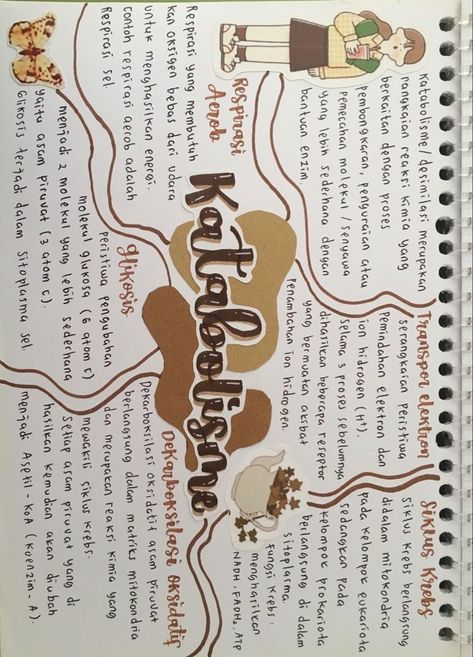 Katabolisme
Katabolisme/desimilasi merupakan
rangkaian reaksi kimia yang
berkaitan dengan proses
pembongkaran, penguraian atau
pemecahan molekul / senyawa
yang lebih sederhana dengan
bantuan enzim.
Respirasi
Aerob
Respirasi yang membutuh
kan oksigen bebas dari udara
untuk menghasilkan energi.
contoh respirasi aerob adalah
Respirasi sel.
Transpor elektron
serangkaian peristiwa
Pemindahan elektron dan
ion hidrogen (H⁺).
selama 3 proses sebelumnya
dihasilkan beberapa reseptor
yang bermuatan akibat
penambahan ion hidrogen.
Glikosis
peristiwa pengubahan
molekul glukosa (6 atom c)
menjadi 2 molekul yang lebih sederhana
yaitu asam piruvat (3 atom c).
Glikosis terjadi dalam sitoplasma sel.
Siklus Krebs
siklus krebs berlangsung
didalam mitokondria
pada kelompok eukariota
sedangkan pada
kelompok prokariota
berlangsung di dalam
sitoplasma.
fungsi krebs:
menghasilkan
NADH, FADH₂, ATP
Dekarboksilasi oksidatif
Dekarboksilasi oksidatif asam piruvat
berlangsung dalam matriks mitokondria
dan merupakan reaksi kimia yang
mewakili siklus krebs.
setiap asam piruvat yang di
hasilkan kemudian akan diubah
menjadi Asetil-KoA (koenzim-A).